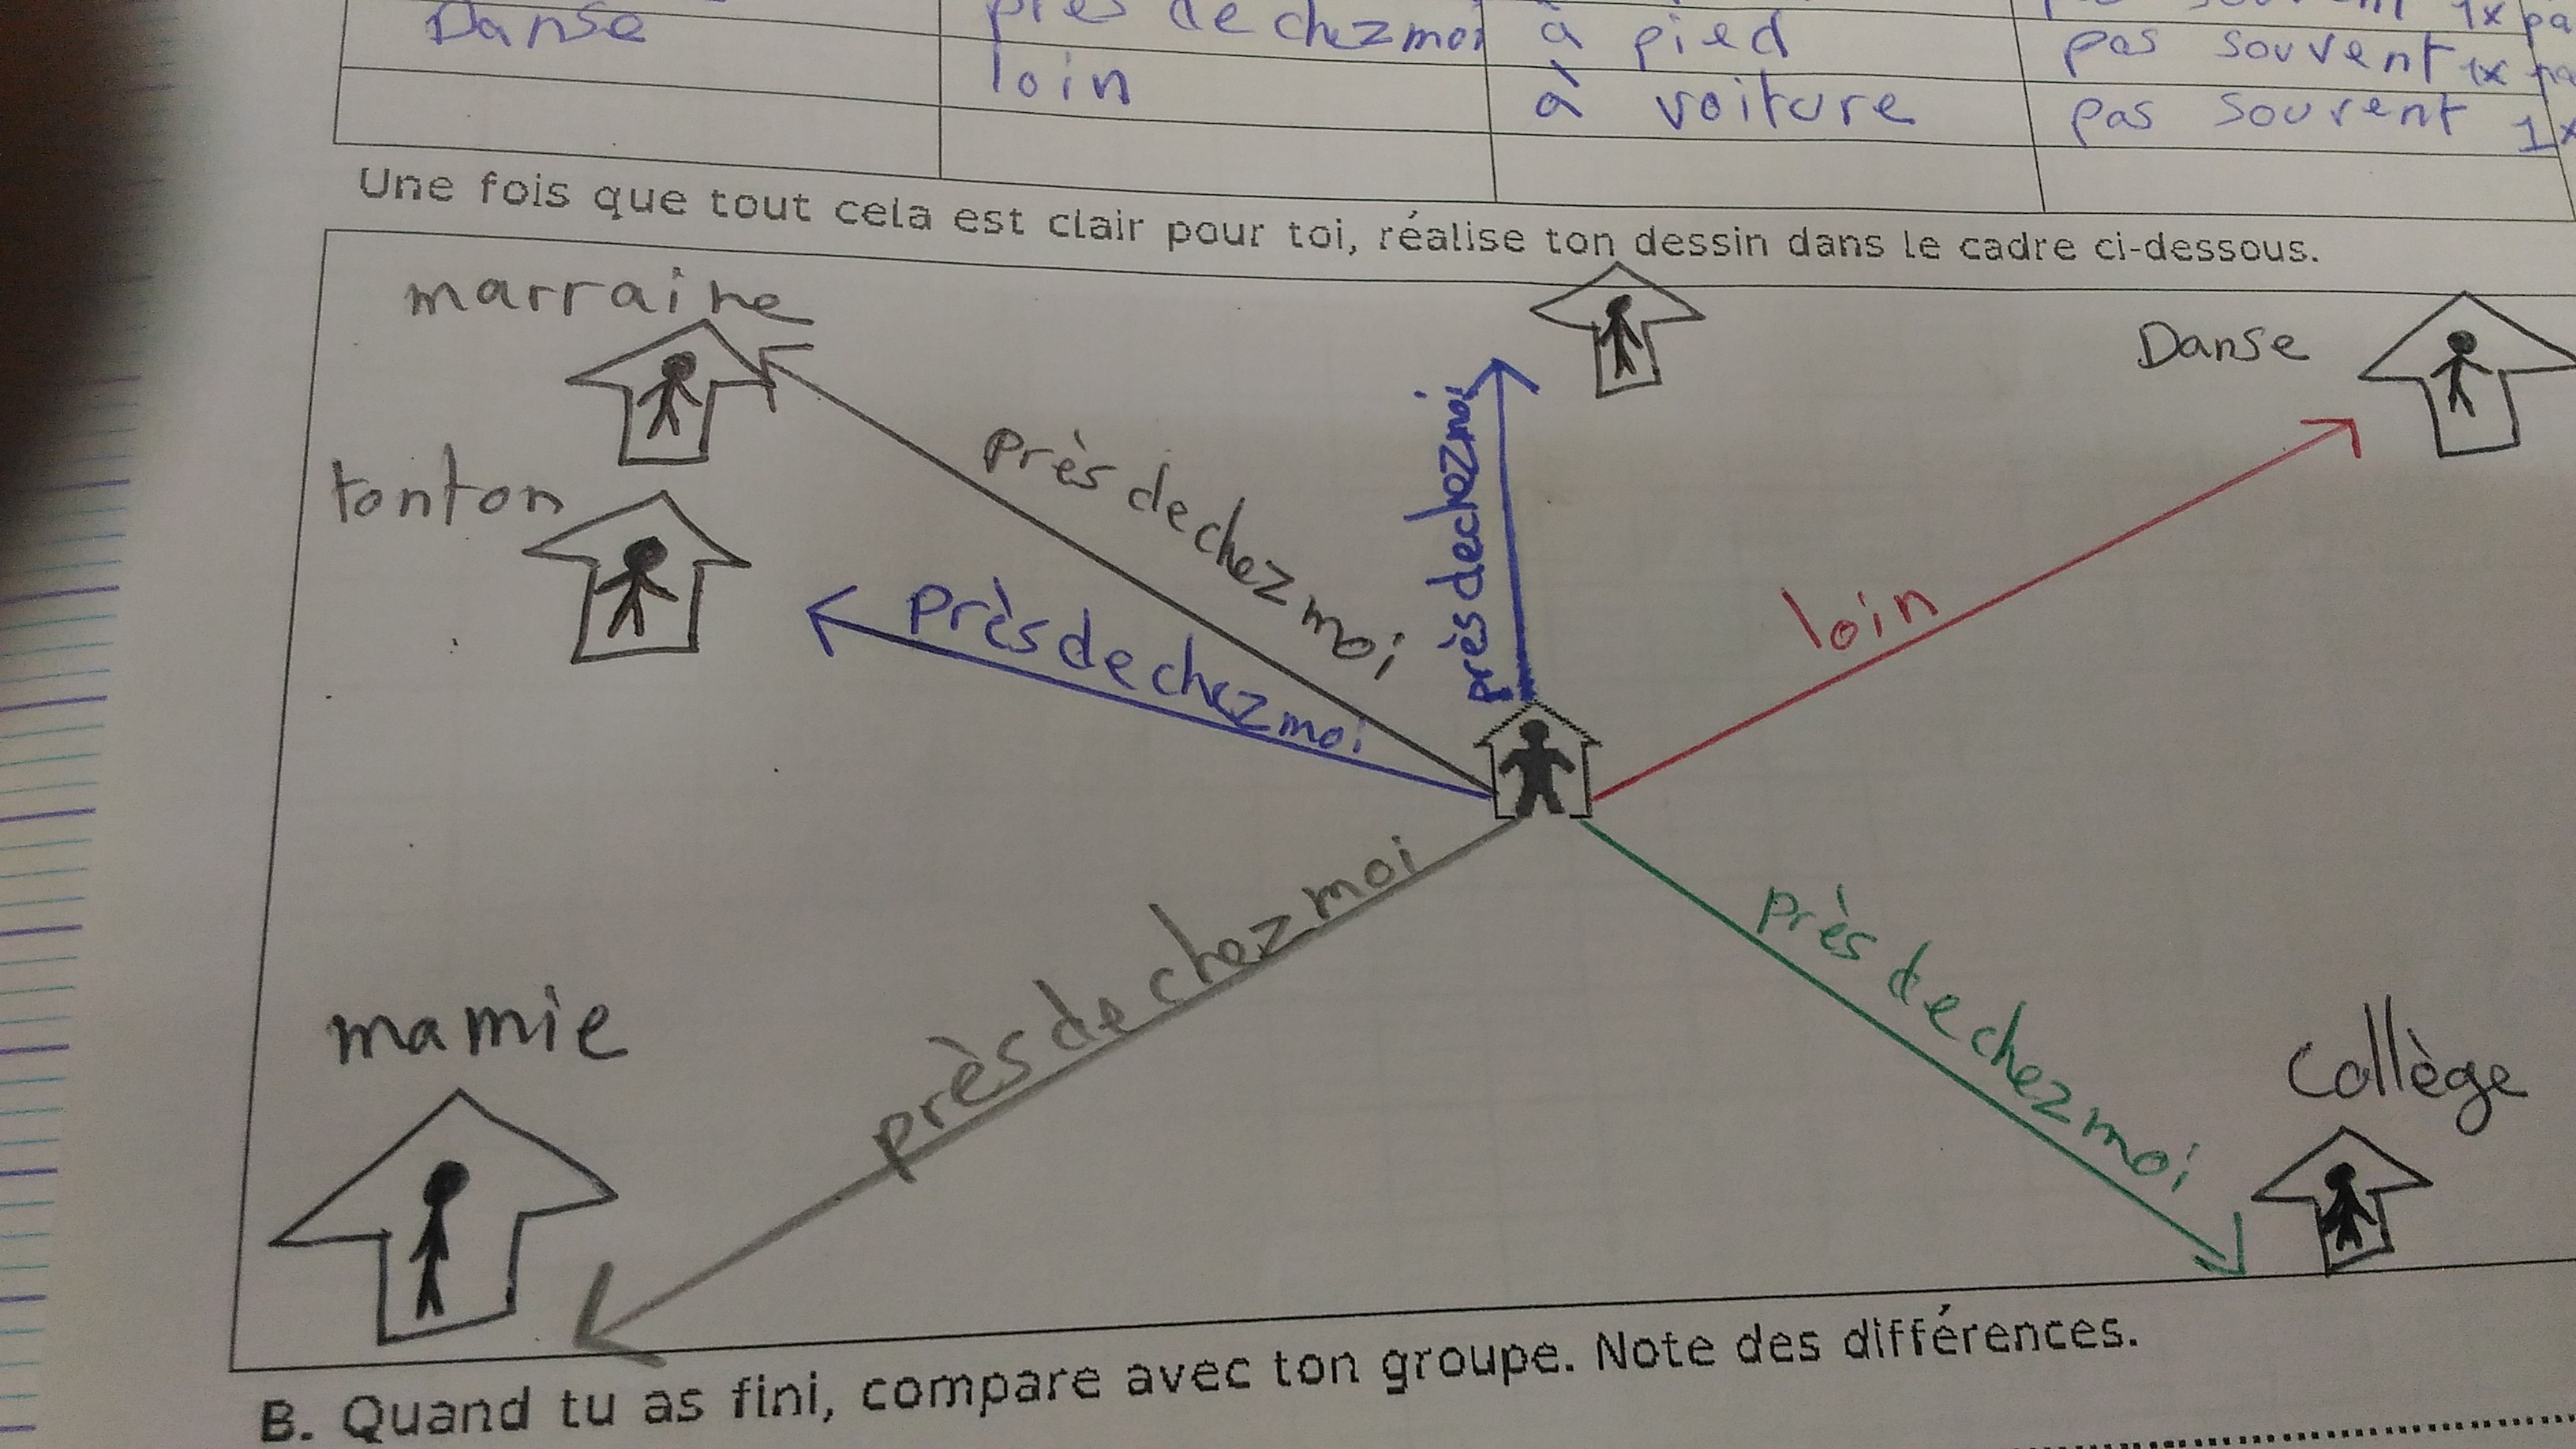 Danse près de chez moi à pied pas souvent 1x
loin à voiture pas souvent 1x
Une fois que tout cela est clair pour toi, réalise ton dessin dans le cadre ci-dessous.
marraine
Danse
tonton
près de chez moi
près de chez moi
près de chez moi
loin
près de chez moi
près de chez moi
mamie
Collège
B. Quand tu as fini, compare avec ton groupe. Note des différences.